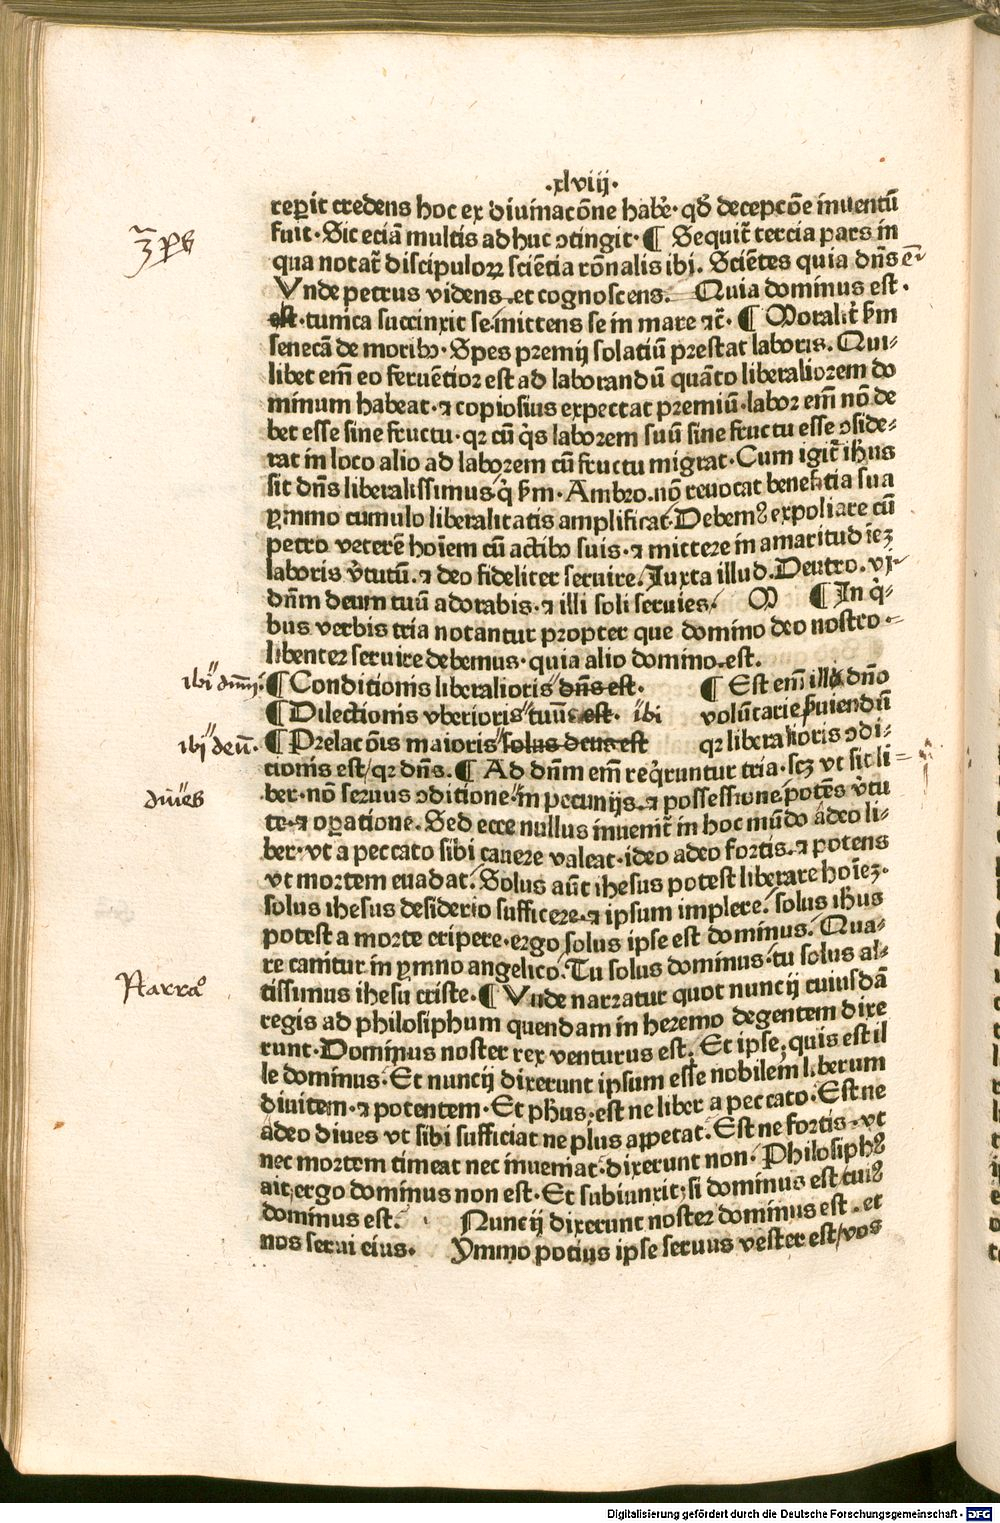 .xlviij.
reperit credens hoc ex diuinacōne habe᷒. qd̄ decepcōe inuentū
fuit. Sic eciā multis ad huc ↄtingit. ¶ Sequit᷒ tercia pars in
qua notat᷒ discipuloꝝ sciētia rōnalis ibi. Sciētes quia dn̄s ē
Vnde petrus videns et cognoscens. Quia dominus est.
est. tunica succinxit se. mittens se in mare ⁊c̄. ¶ Moralit᷒ ẜm
senecā de moribꝫ. Spes premij solatiū prestat laboris. Qui-
libet em̄ eo feruētior est ad laborandū quāto liberaliorem do
minum habeat. ⁊ copiosius expectat premiū. labor em̄ nō de
bet esse sine fructu. qꝛ cū q̇s laborem suū sine fructu esse ↄside-
rat in loco alio ad laborem cū fructu migrat. Cum igit᷒ ih̄us
sit dn̄s liberalissimus q̇ ẜm. Ambro. nō reuocat beneficia sua
ymmo cumulo liberalitatis amplificat. Debemꝰ expoliare cū
petro veterē hoīem cū actibꝫ suis. ⁊ mittere in amaritudīez
laboris v̓tutū. ⁊ deo fideliter seruire. Iuxta illud. Deutro. vj
dn̄m deum tuū adorabis. ⁊ illi soli seruies. M ¶ In q̇-
bus verbis tria notantur propter que domino deo nostro
libenter seruire debemus. quia alio domino est.
ibi dnīj. ¶ Conditionis liberalioris dn̄s est. ¶ Est em̄ illi dn̄o
¶ Dilectionis vberioris tuus est. ibi volūtarie ẜuiendū
ibi deū. ¶ Prelacōis maioris solus deus est qꝛ liberalioris ↄdi-
tionis est/ qꝛ dn̄s. ¶ Ad dn̄m em̄ req̇runtur tria. scꝫ vt sit li-
diues ber. nō seruus ↄditione. in pecunijs. ⁊ possessione potēs v̓tu
te. ⁊ oꝑatione. Sed ecce nullus inuenit᷒ in hoc mūdo adeo li-
ber. vt a peccato sibi cauere valeat. ideo adeo fortis. ⁊ potens
vt mortem euadat. Solus aūt ihesus potest liberare hoīez.
solus ihesus desiderio sufficere. ⁊ ipsum implere. solus ih̄us
potest a morte eripere. ergo solus ipse est dominus. Qua-
re canitur in ymno angelico. Tu solus dominus. tu solus al-
Narrao tissimus ihesu criste. ¶ Vnde narratur quot nuncij cuiusdā
regis ad philosiphum quendam in heremo degentem dixe
runt. Dominus noster rex venturus est. Et ipse, quis est il
le dominus. Et nuncij dixerunt ipsum esse nobilem liberum
diuitem. ⁊ potentem. Et ph̄us. est ne liber a peccato. Est ne
adeo diues vt sibi sufficiat ne plus appetat. Est ne fortis. vt
nec mortem timeat nec inueniat. dixerunt non. Philosiphꝰ
ait, ergo dominus non est. Et subiunxit; si dominus est/ cuiꝰ
dominus est. Nuncij dixerunt noster dominus est. et
nos serui eius. Ymmo potius ipse seruus vester est/ vos
Digitalisierung gefördert durch die Deutsche Forschungsgemeinschaft - DFG